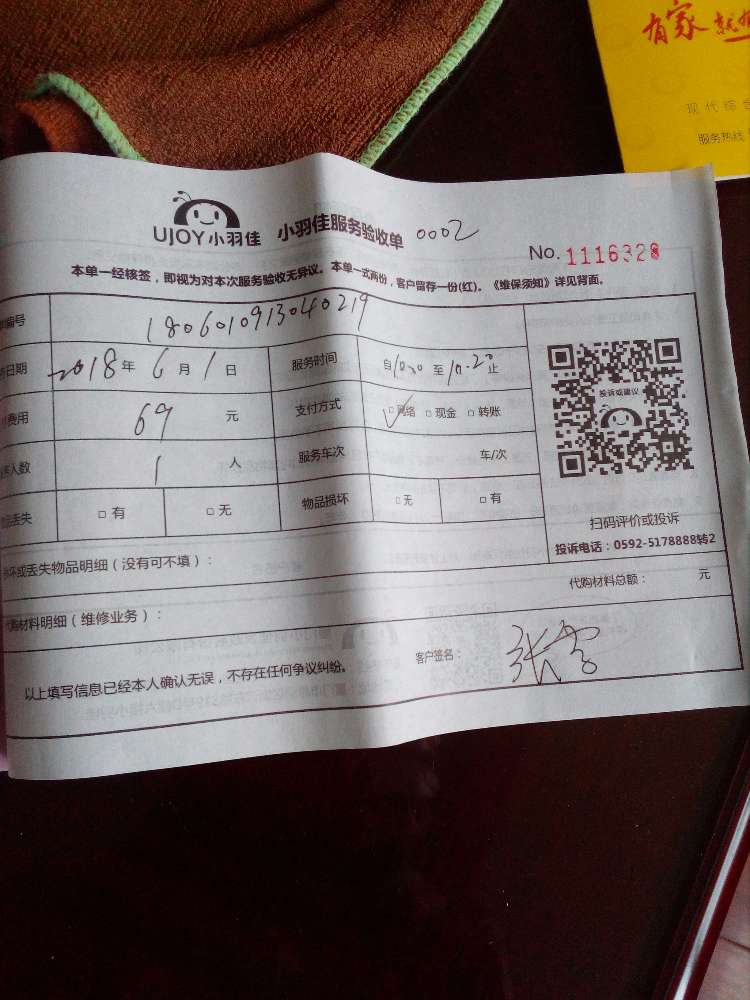 有家就有
现代综合
服务热线
UJOY小羽佳 小羽佳服务验收单 0002
No. 1116328
本单一经核签，即视为对本次服务验收无异议。本单一式两份，客户留存一份(红)。《维保须知》详见背面。
编号 180601091304 0219
日期 2018年 6月 1日 服务时间 自10:00至10:20止
费用 69 元 支付方式 □网络 □现金 □转账
人数 1 人 服务车次 车/次
丢失 □有 □无 物品损坏 □无 □有
投诉或建议
扫码评价或投诉
投诉电话：0592-5178888转2
坏或丢失物品明细（没有可不填）：
代购材料明细（维修业务）： 代购材料总额： 元
以上填写信息已经本人确认无误，不存在任何争议纠纷。 客户签名：